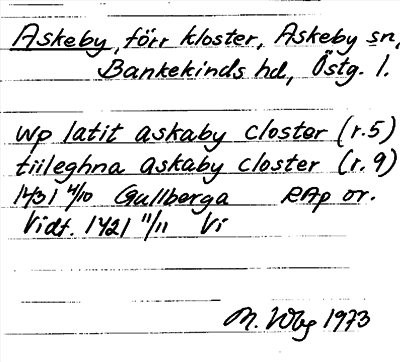 Askeby, förr kloster, Askeby sn,
Bankekinds hd, Östg. l.
wp latit askaby closter (r.5)
tiileghna askaby closter (r.9)
1431 4/10 Gullberga RAp or.
Vidf. 1421 11/11 Vi
M. Wbg 1973